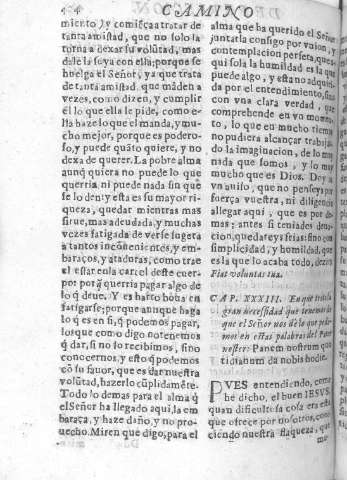 CAMINO
miento) y comiẽçaa tratar de
tanta amistad, que no solo la
torna a dexar su volũtad, mas
dale la suya con ella; porque se
huelga el Señor, ya que trata
de tanta amistad, que mãden a
vezes, como dizen, y cumplir
èl lo que ella le pide, como e-
lla haze lo que èl manda, y mu-
cho mejor, porque es podero-
so, y puede quãto quiere, y no
dexa de querer. La pobre alma
aunq̃ quiera no puede lo que
querria, ni puede nada sin que
se lo den: y esta es su mayor ri-
queza, quedar mientras mas
sirue, mas adeudada, y muchas
vezes fatigada de verse sugeta
a tantos incõuenientes, y em-
baraços, y ataduras, como trae
el estar en la carcel deste cuer-
po: por q̃ querria pagar algo de
lo q̃ deue. Y es harto boba en
fatigarse; porque aunque haga
lo q̃ es en si, q̃ podemos pagar,
los que como digo no tenemos
q̃ dar, si no lo recibimos, sino
conocernos, y esto q̃ podemos
cõ su fauor, que es dar nuestra
volũtad, hazerlo cũplidamẽte.
Todo lo demas para el alma q̃
el Señor ha llegado aqui, la em
baraça, y haze daño, y no pro-
uecho. Miren que digo, para el
alma que ha querido el Señor
juntarla consigo por vnion, y
contemplacion perfeta, que a-
qui sola la humildad es la que
puede algo, y esta no adquiri-
da por el entendimiento, sino
con vna clara verdad, que
comprehende en vn momen-
to, lo que en mucho tiempo
no pudiera alcançar trabajan-
do la imaginacion, de lo muy
nada que somos, y lo muy
mucho que es Dios. Doy os
vn auiso, que no penseys por
fuerça vuestra, ni diligencia
allegar aqui, que es por de-
mas; antes si teniades deuo-
cion, quedareys frias: sino con
simplicidad, y humildad, que
es la que lo acaba todo, dezir:
Fiat voluntas tua.
CAP. XXXIII. En que trata la
gran necessidad que tenemos de
que el Señor nos dè lo que pedi-
mos en estas palabras del Pater
noster: Panem nostrum quo-
tidianum da nobis hodie.
PVES entendiendo, como
he dicho, el buen IESVS,
quan dificultosa cosa era esta
que ofrece por nosotros, cono-
ciendo nuestra flaqueza, que